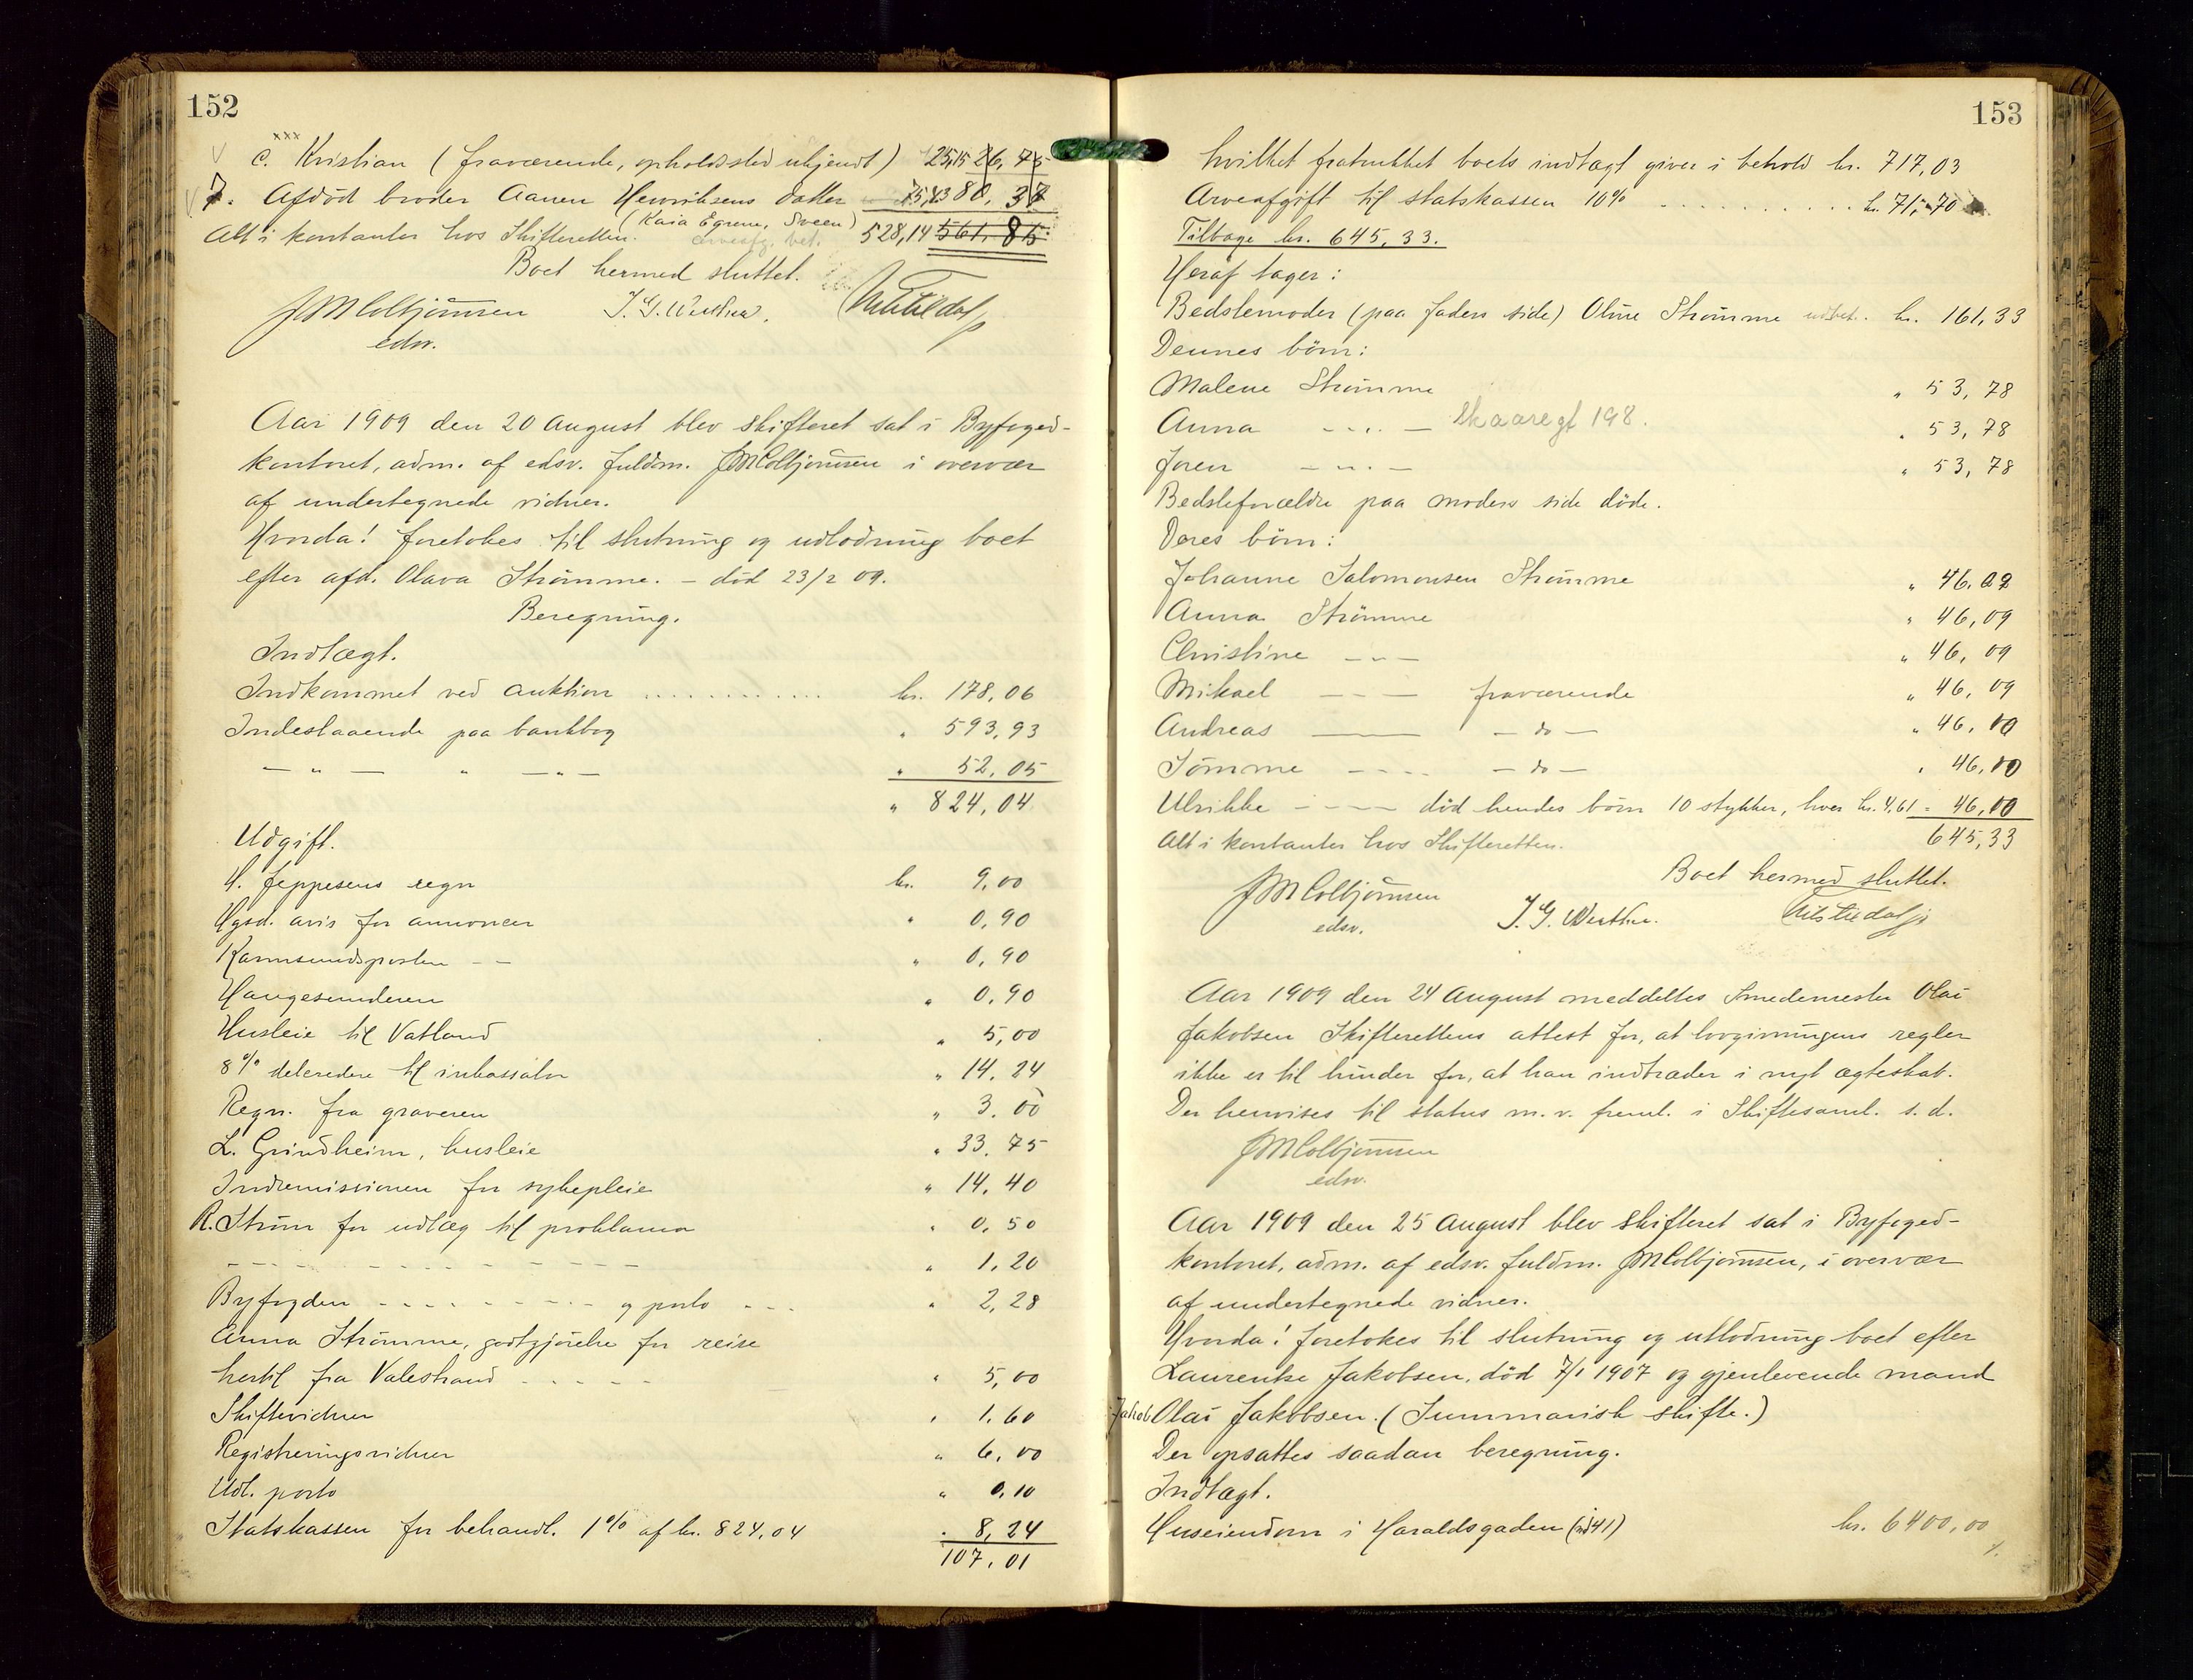 152
c. Kristian (fraværende, opholdssted ukjendt) 25,15 26,75
7. Afdöd broder Aanen Henriksens datter 75,43 80,37
(Kaia Egrene, Sveen)
Alt i kontanter hos Skifteretten. 528,14 561,85
Boet hermed sluttet.
JM Colbjörnsen
edsv.
Aar 1909 den 20 August blev skifteret sat i Byfoged-
kontoret, adm. af edsv. fuldm. JM Colbjörnsen i overvær
af undertegnede vidner.
Hvorda! foretokes til slutning og udlodning boet
efter afd. Olava Strömme. – död 23/2 09.
Beregning.
Indtægt.
Indkommet ved auktion ............ kr. 178,06
Indestaaende paa bankbog " 593,93
— " — " — " — " 52,05
" 824,04
Udgift.
H. Jeppesens regn kr. 9,00
Hgsd. avis for annoncer " 0,90
Karmsundsposten – – " 0,90
Haugesunderen " 0,90
Husleie til Vatland " 5,00
8% delcredere til inkassator " 14,24
Regn. fra graveren " 3,00
L. Grindheim, husleie " 33,75
Indremissionen for sykepleie " 14,40
R. Ström for udlæg til proklama " 0,50
– – – – – – – – – – " 1,20
Byfogden – – – – – – – og porto – – – " 2,28
Anna Strömme, godtgjörelse for reise
hertil fra Valestrand – – – – – " 5,00
Skiftevidner " 1,60
Registreringsvidner " 6,00
Udl. porto " 0,10
Statskassen for behandl. 1% af kr. 824,04 " 8,24
107,01
153
hvilket fratrukket boets indtægt giver i behold kr. 717,03
Arveafgift til statskassen 10% .......... kr. 71,70
Tilbage kr. 645,33.
Heraf tager:
Bedstemoder (paa faders side) Oline Strömme udbet. kr. 161,33
Dennes börn:
Malene Strömme " 53,78
Anna – " – " 53,78
Joren – " – " 53,78
Bedsteforældre paa moders side döde.
Deres börn:
Johanne Salomonsen Strömme " 46,09
Anna Strömme " 46,09
Christine – " – " 46,09
Mikael – – – fraværende " 46,09
Andreas ——— – do – " 46,00
Tömme – – – – – do – " 46,00
Ulrikke – – – död hendes börn 10 stykker, hver kr. 4,61 = 46,00
645,33
Alt i kontanter hos Skifteretten.
Boet hermed sluttet.
JM Colbjörnsen
edsv.
Aar 1909 den 24 August meddeltes Smedemester Olai
Jakobsen Skifterettens attest for, at lovgivningens regler
ikke er til hinder for, at han indtræder i nyt ægteskab.
Der henvises til status m. v. freml. i Skiftesaml. s. d.
JM Colbjörnsen
edsv.
Aar 1909 den 25 August blev skifteret sat i Byfoged-
kontoret, adm. af edsv. fuldm. JM Colbjörnsen, i overvær
af undertegnede vidner.
Hvorda! foretokes til slutning og utlodning boet efter
Laurentse Jakobsen, död 7/1 1907 og gjenlevende mand
Jakob Olai Jakobsen. (Summarisk skifte.)
Der opsattes saadan beregning.
Indtægt.
Huseiendom i Haraldsgaden kr. 6400,00